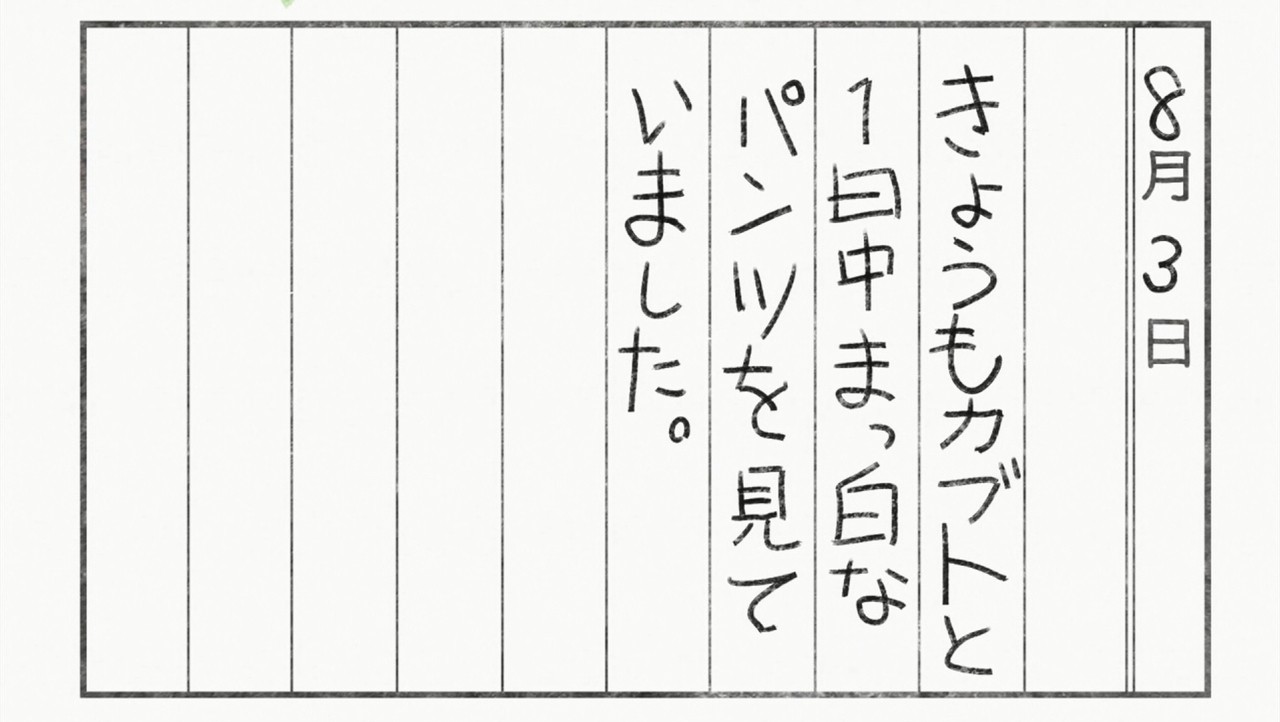 8月3日
きょうもカブトと
1日中まっ白な
パンツを見て
いました。